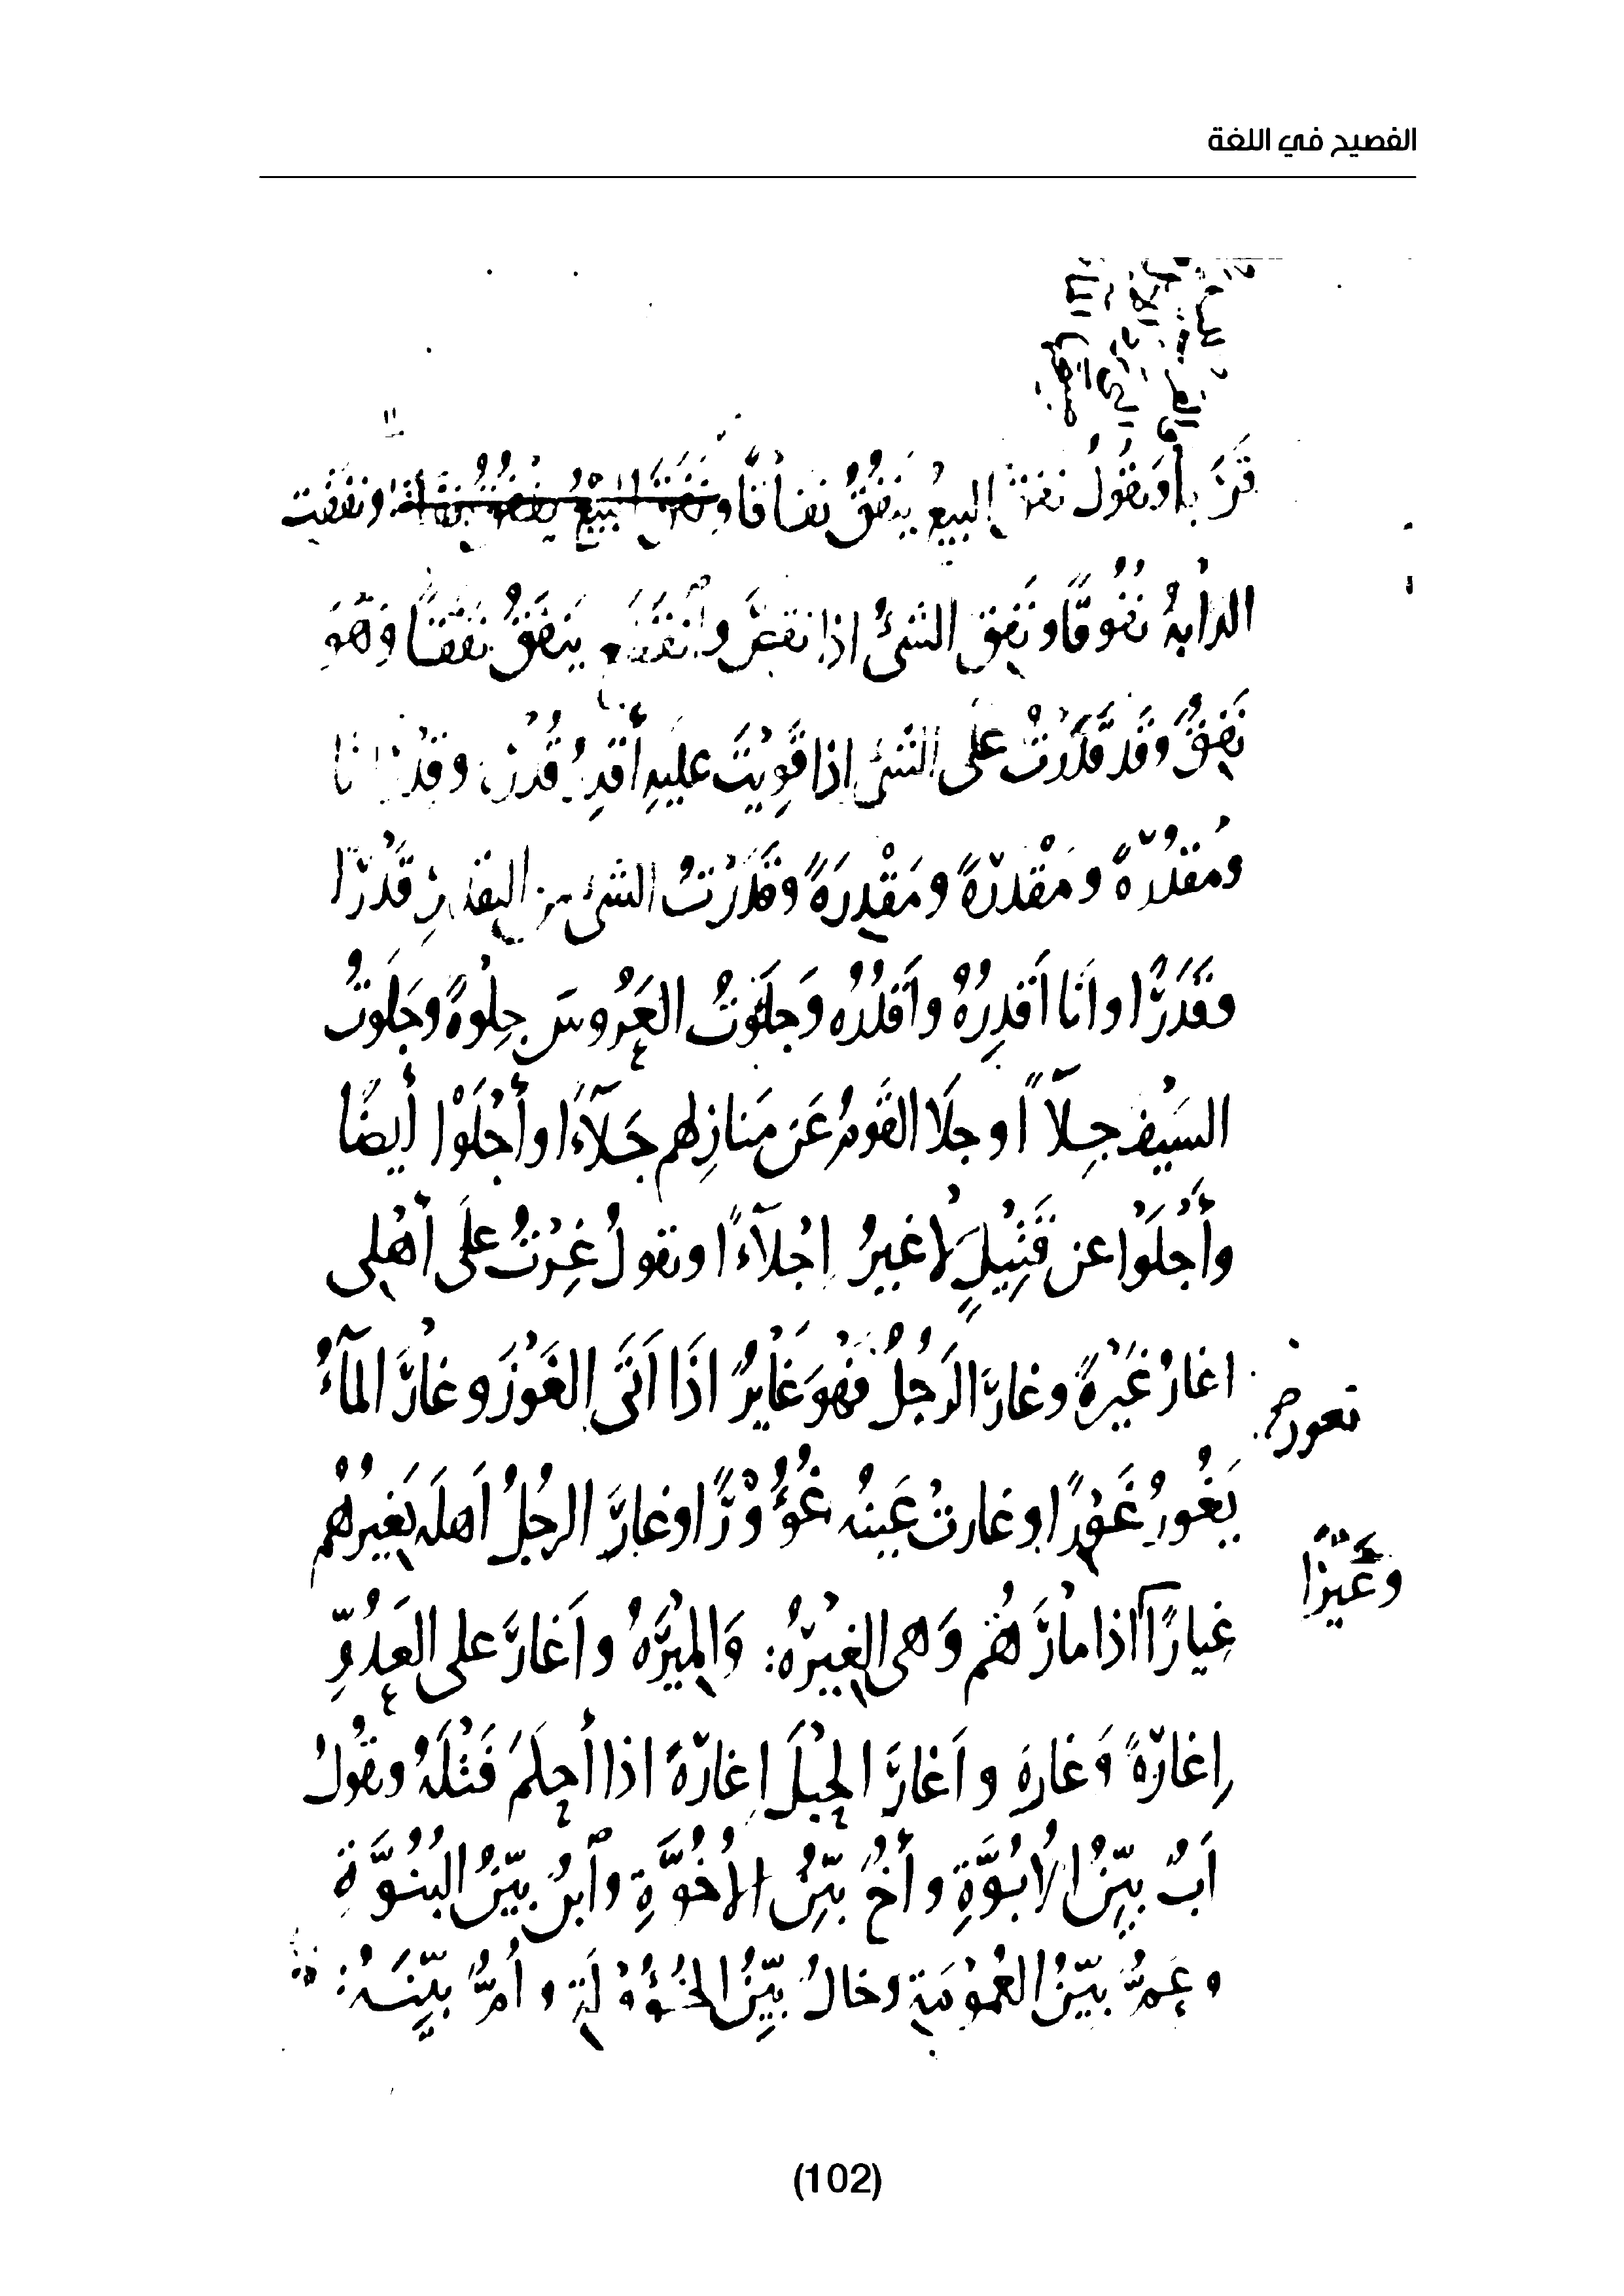 الفصيح في اللغة
وتقول نفق البيعُ ينفُقُ نفاقًا ونفقت
الدابةُ نُفُوقًا ونَفِق الشئُ اذا نقص وانقطع ينفَقُ نفَقًا وهو
نَفِقٌ وقد قَدَرْتُ على الشئ اذا قَوِيتَ عليهِ أقدِرُ قُدرة وقدرانا
ومَقدُرَةً ومَقْدَرَةً ومَقْدِرَةً وقَدَرْتُ الشئ من التقدير قَدْرًا
وقَدَرًا وانَا اَقدِرُهُ واَقدُرُه وَجلَوْتُ العَرُوسَ جِلْوةً وجَلَوتُ
السَيْف جِلآً وجلَا القَومُ عَن مَنازِلهم جَلآءًا وأجْلَوْا أيضًا
وأَجْلَوْا عن قَتِيْلٍ لَاغيرُ اِجْلآءًا وتقولُ غِرْتُ علَى أهْلِى
اغارُ غَيْرَةً وغارَ الرَجُلُ فَهْوَ غَايرٌ اذَا اَتَى الغَوْرَ وغَارَ المآءُ
يَغُورُ غَوْرًا وغارتْ عَينُه غُؤُوْرًا وغارَ الرجُلُ اَهلَه يَغِيرُهُم
غِيارًا اذا مارَهُم وَهى الغِيْرَةُ: وَالمِيْرَةُ واَغارَ على العَدُوِّ
اِغارَةً وَغارة واَغارَ الحبْلَ اِغارَةً اذا أحكمَ فَتْلَهُ وتقُولُ
اَبٌ بيّنُ الأُبُوَّةِ وأخٌ بيّنُ الأُخُوَّةِ وابنٌ بيّنُ البُنُوَّةِ
وعمٌّ بيّنُ العُمُوْمَةِ وخالٌ بيّنُ الخُؤُوْلَةِ وأمٌّ بيّنَةُ:
(102)